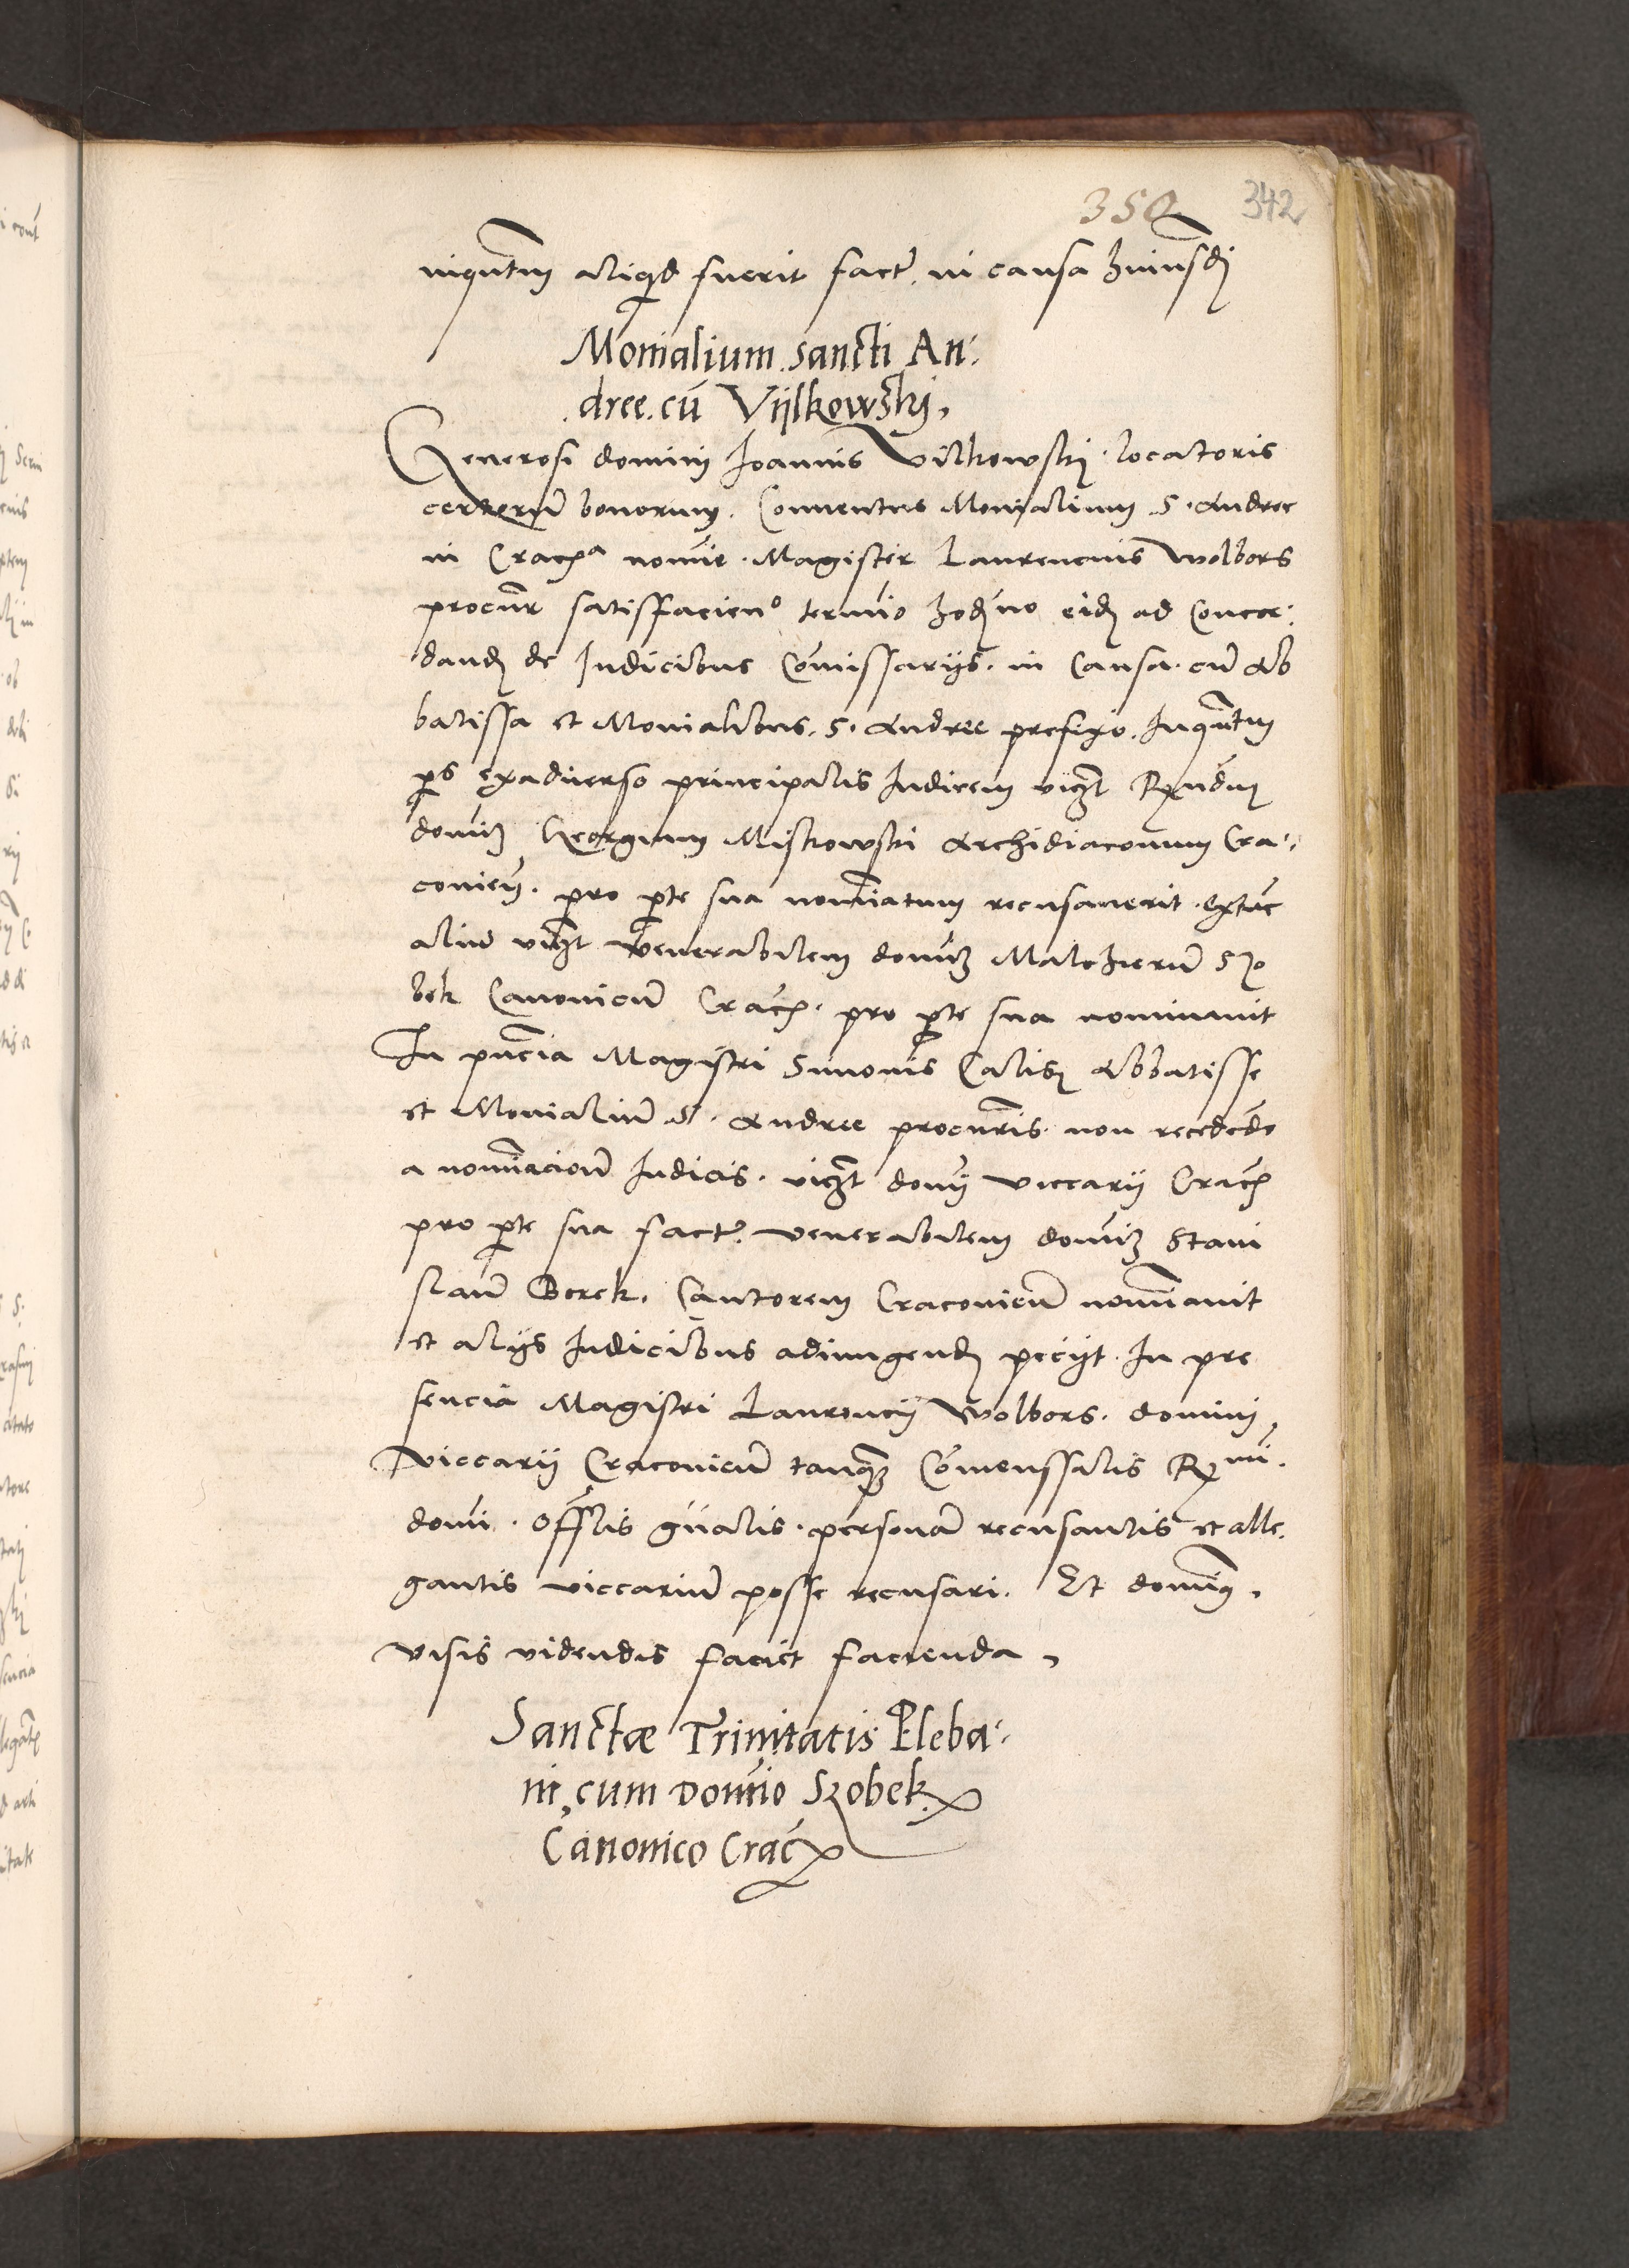 350 342
inqntum aliqd fuerit fact. in causa huiusdj
Monialium sancti An:
dree. cū Vijlkowskj.
Generosi dominj Joannis Vilkowskj. locatoris
certerum bonorum. Conuentus Monialium S. Andree
in Cracha nomīe. Magister Laurencius Wolbors
procūr satisfacieno termīo hodīno eidj ad Concor:
dandj de Iudicibus Cōmissarijs. in Causa. cū Ab
batissa et Monialibus. S. Andree prefixo. Inqūntum
ps exaduerso principalis Iudicem vigzt Rxndum
domīn Georgium Miskowski Archidiaconum Cra:
conien. pro pte sua nomīatum recusauerit. extūc
aliū vigzt venerabilem domīn Malcherū Szo
bek Canonicū Crach. pro pte sua nominauit
In pncia Magistri Simonis Calisz Abbatisse
et Monialiū S. Andree procūris. non recedēdo
a nomīacionē Iudicis. vigzt domīj viccarij Crach
pro pte sua fact. venerabilem domīn Stani
slaū Borek. Cantorem Cracovieñ nomīauit
et alijs Iudicibus adiungendj pecijt. In pre
sencia Magistri Laurencij Wolbors. dominj
viccarij Cracovieñ tanqz Cōmenssalis Rxmi.
domī. Offlis gnalis. personā recusantis et alle.
gantis viccariū posse recusari. Et domīq.
visis videndis faciet facienda.
Sanctæ Trinitatis Pleba:
ni, cum Domīo Szobek
Canonico Crac